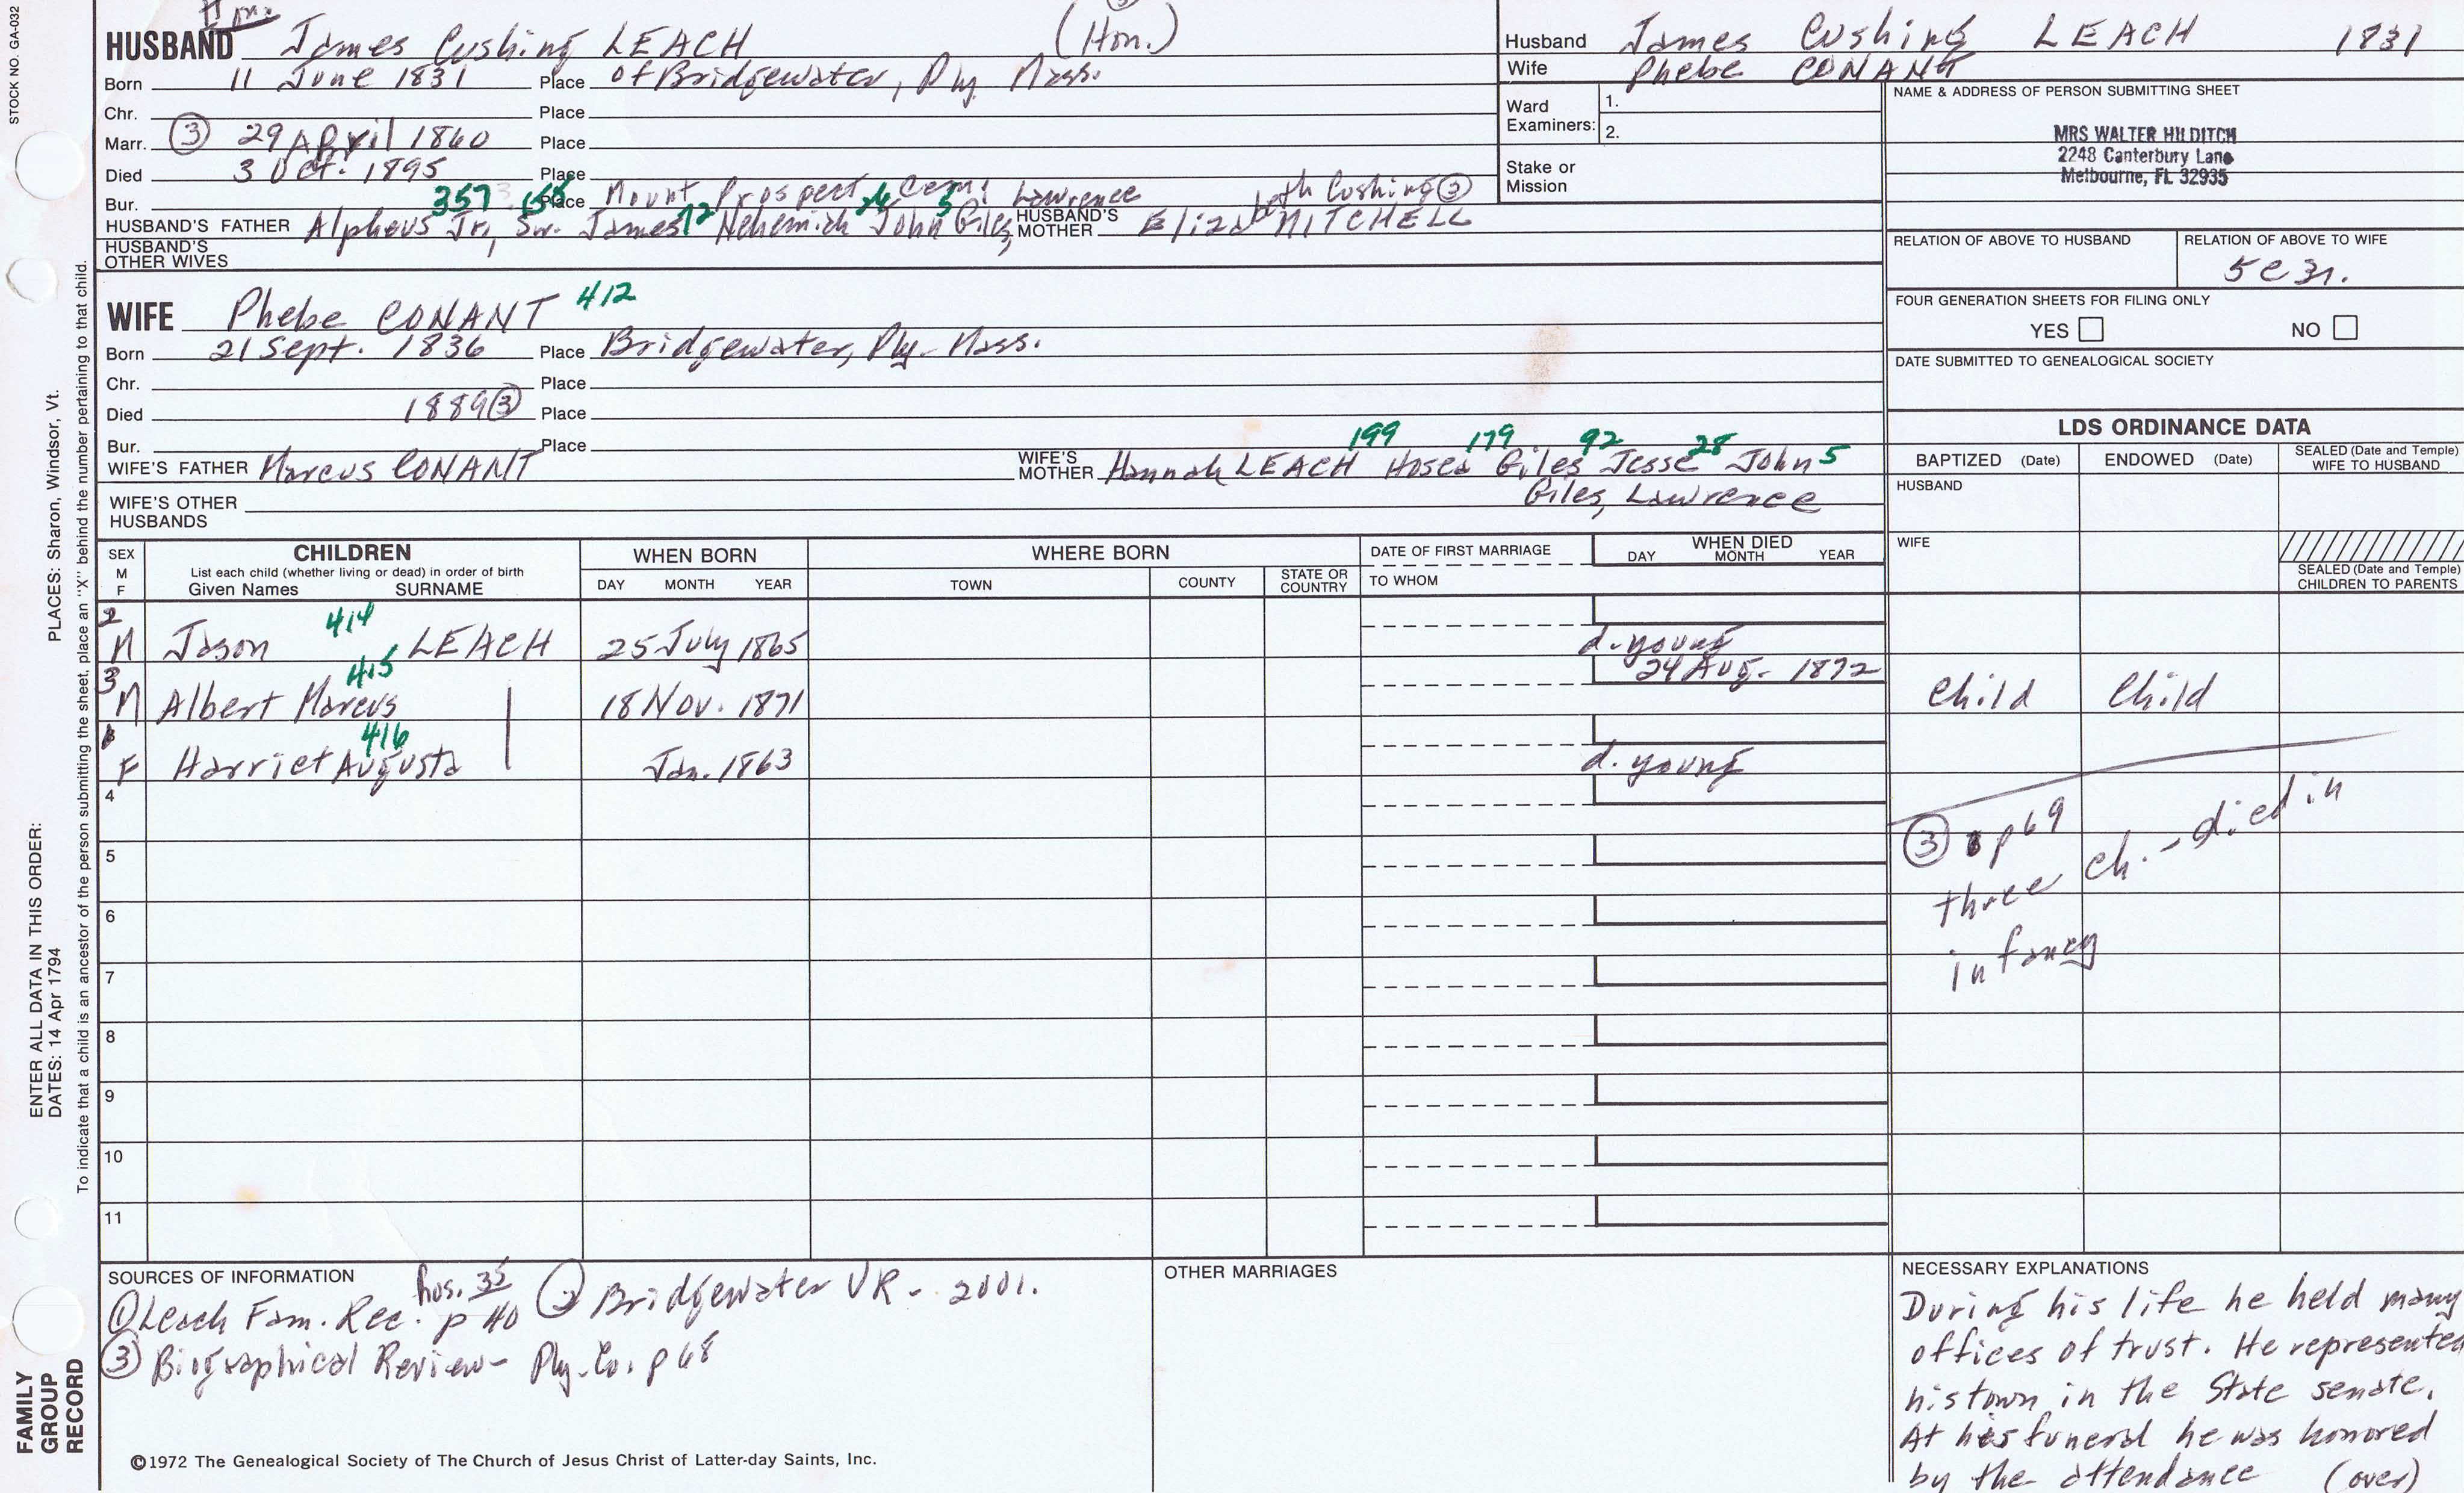 STOCK NO. GA-032
Hon.
HUSBAND James Cushing LEACH (Hon.)
Born 11 June 1831 Place of Bridgewater, Ply. Mass.
Chr. Place
Marr. ③ 29 April 1860 Place
Died 3 Oct. 1895 Place
Bur. Place Mount Prospect Cem. Lawrence
357 155 72 24 5
HUSBAND'S FATHER Alpheus Jr., James Nehemiah John Giles,
HUSBAND'S MOTHER Elizabeth Cushing ③ MITCHELL
HUSBAND'S OTHER WIVES
WIFE Phebe CONANT 412
Born 21 Sept. 1836 Place Bridgewater, Ply. Mass.
Chr. Place
Died 1889 ③ Place
Bur. Place
199 179 92 28
WIFE'S FATHER Marcus CONANT
WIFE'S MOTHER Hannah LEACH Hosea Giles Jesse John 5
Giles, Lawrence
WIFE'S OTHER HUSBANDS
Husband James Cushing LEACH 1831
Wife Phebe CONANT
Ward Examiners: 1.
2.
Stake or Mission
NAME & ADDRESS OF PERSON SUBMITTING SHEET
MRS WALTER HILDITCH
2248 Canterbury Lane
Melbourne, FL 32935
RELATION OF ABOVE TO HUSBAND RELATION OF ABOVE TO WIFE
5C 3r.
FOUR GENERATION SHEETS FOR FILING ONLY
YES NO
DATE SUBMITTED TO GENEALOGICAL SOCIETY
LDS ORDINANCE DATA
BAPTIZED (Date) ENDOWED (Date) SEALED (Date and Temple) WIFE TO HUSBAND
HUSBAND
WIFE
SEALED (Date and Temple) CHILDREN TO PARENTS
SEX M F CHILDREN WHEN BORN WHERE BORN DATE OF FIRST MARRIAGE WHEN DIED
List each child (whether living or dead) in order of birth
Given Names SURNAME DAY MONTH YEAR TOWN COUNTY STATE OR COUNTRY TO WHOM DAY MONTH YEAR
2 M Jason 414 LEACH 25 July 1865 d. young
3 M Albert Marcus 415 18 Nov. 1871 24 Aug. 1872 Child Child
1 F Harriet Augusta 416 Jan. 1863 d. young
4
5
6
7
8
9
10
11
③ p 69
three ch. - died in
infancy
SOURCES OF INFORMATION
① Leach Fam. Rec. hos. 35 p 40 ② Bridgewater VR - 2001.
③ Biographical Review - Ply. Co. p 68
OTHER MARRIAGES
NECESSARY EXPLANATIONS
During his life he held many
offices of trust. He represented
his town in the State senate.
At his funeral he was honored
by the attendance (over)
©1972 The Genealogical Society of The Church of Jesus Christ of Latter-day Saints, Inc.
ENTER ALL DATA IN THIS ORDER:
DATES: 14 Apr 1794 PLACES: Sharon, Windsor, Vt.
To indicate that a child is an ancestor of the person submitting the sheet, place an "X" behind the number pertaining to that child.
FAMILY
GROUP
RECORD